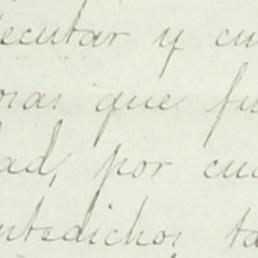 ecutar y cu
oras que fu
dad, por cua
ntedichos ta